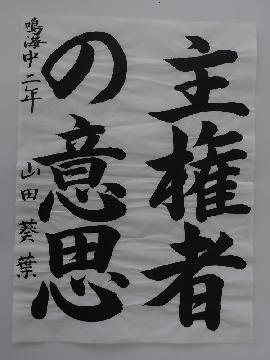 主権者
の意思
鳴海中二年
山田葵葉